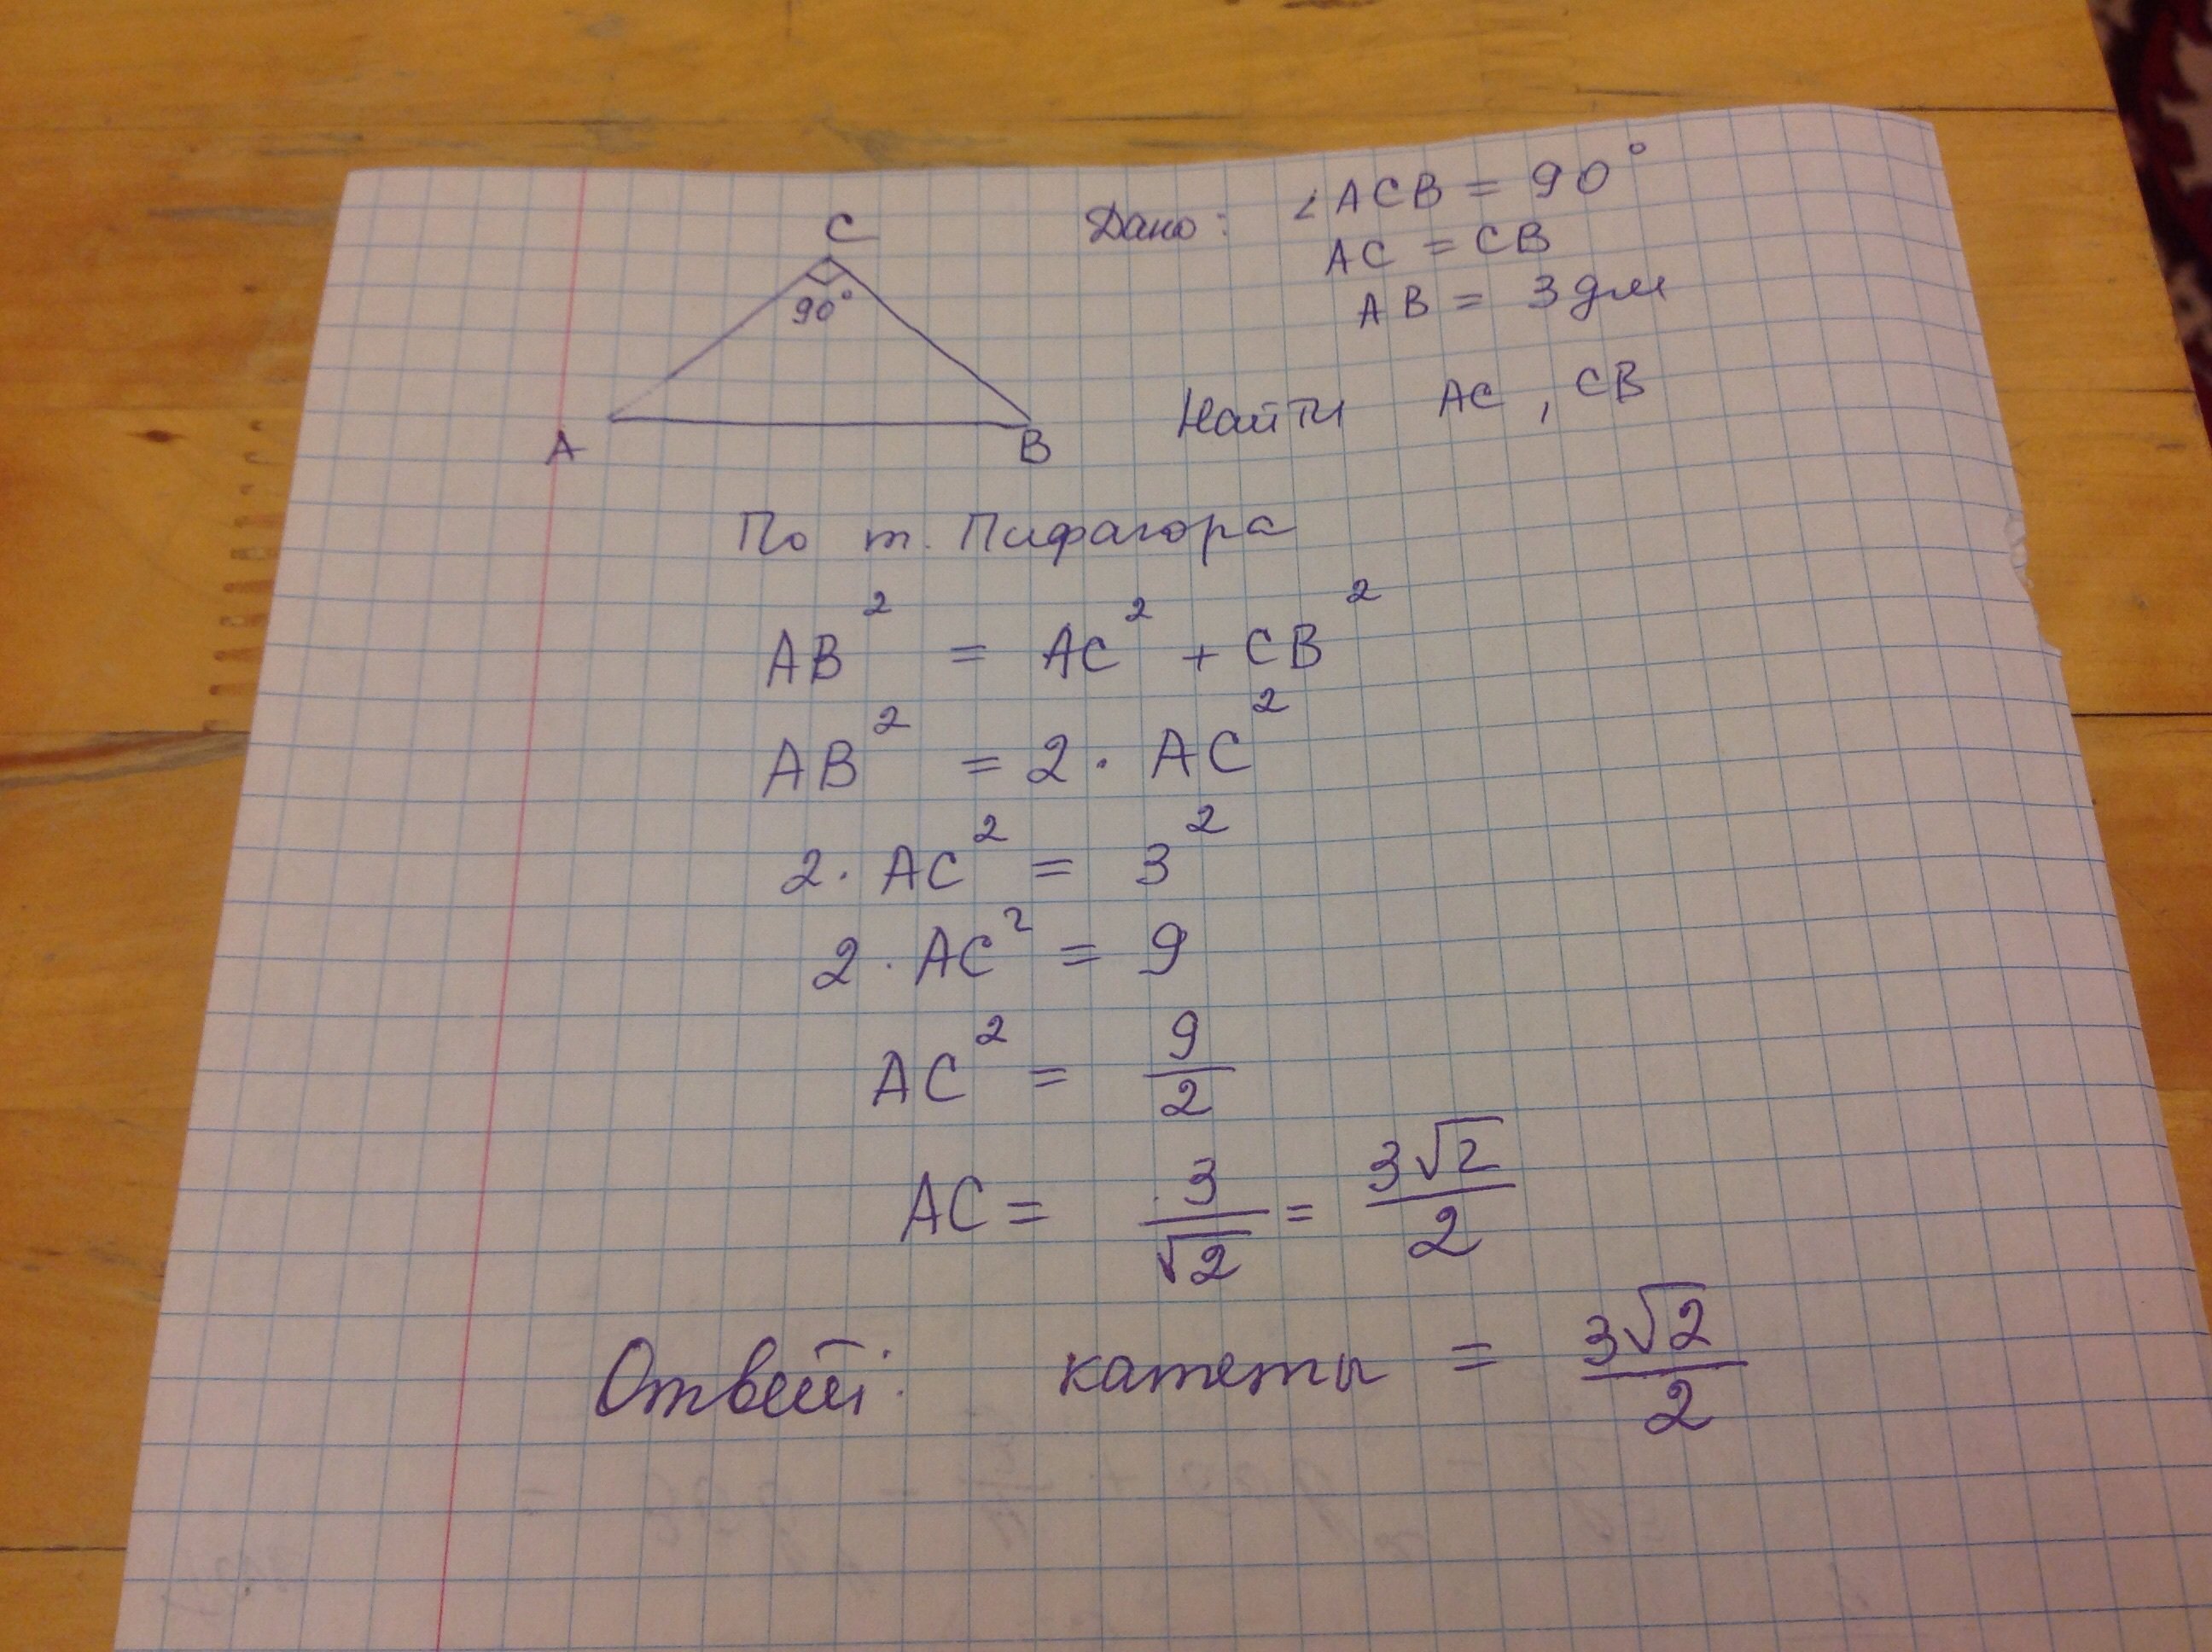 C
90°
A
B
Дано: ∠ACB = 90°
AC = CB
AB = 3дм
Найти AC, CB
По т. Пифагора
AB² = AC² + CB²
AB² = 2 · AC²
2 · AC² = 3²
2 · AC² = 9
AC² = 9/2
AC = 3/√2 = 3√2/2
Ответ: катеты = 3√2/2